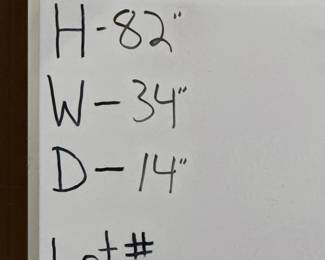 H-82"
W-34"
D-14"
Lot#